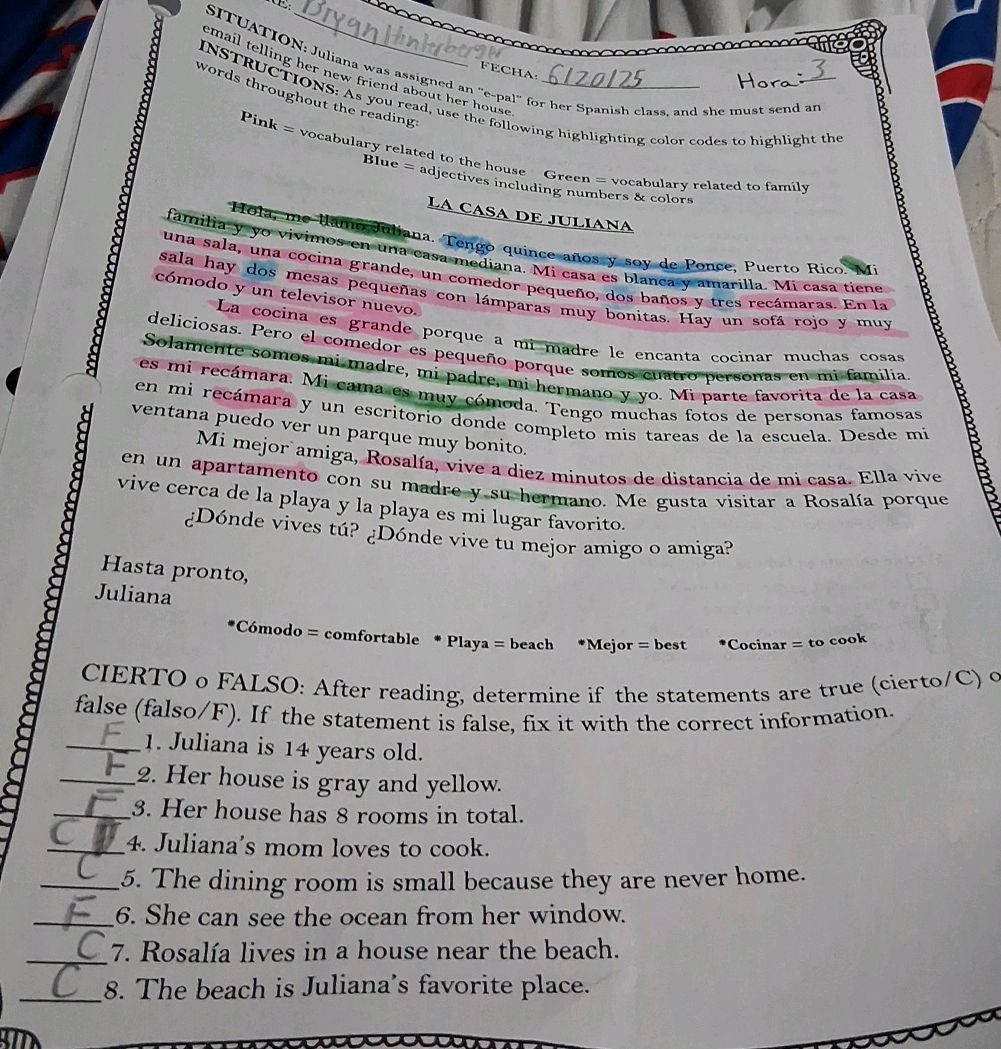 E: Bryan Hinterberger
FECHA: 6/20/25 Hora: 3
SITUATION: Juliana was assigned an "e-pal" for her Spanish class, and she must send an
email telling her new friend about her house.
INSTRUCTIONS: As you read, use the following highlighting color codes to highlight the
words throughout the reading:
Pink = vocabulary related to the house Green = vocabulary related to family
Blue = adjectives including numbers & colors
LA CASA DE JULIANA
Hola, me llamo Juliana. Tengo quince años y soy de Ponce, Puerto Rico. Mi
familia y yo vivimos en una casa mediana. Mi casa es blanca y amarilla. Mi casa tiene
una sala, una cocina grande, un comedor pequeño, dos baños y tres recámaras. En la
sala hay dos mesas pequeñas con lámparas muy bonitas. Hay un sofá rojo y muy
cómodo y un televisor nuevo.
La cocina es grande porque a mi madre le encanta cocinar muchas cosas
deliciosas. Pero el comedor es pequeño porque somos cuatro personas en mi familia.
Solamente somos mi madre, mi padre, mi hermano y yo. Mi parte favorita de la casa
es mi recámara. Mi cama es muy cómoda. Tengo muchas fotos de personas famosas
en mi recámara y un escritorio donde completo mis tareas de la escuela. Desde mi
ventana puedo ver un parque muy bonito.
Mi mejor amiga, Rosalía, vive a diez minutos de distancia de mi casa. Ella vive
en un apartamento con su madre y su hermano. Me gusta visitar a Rosalía porque
vive cerca de la playa y la playa es mi lugar favorito.
¿Dónde vives tú? ¿Dónde vive tu mejor amigo o amiga?
Hasta pronto,
Juliana
*Cómodo = comfortable * Playa = beach *Mejor = best *Cocinar = to cook
CIERTO o FALSO: After reading, determine if the statements are true (cierto/C) o
false (falso/F). If the statement is false, fix it with the correct information.
F 1. Juliana is 14 years old.
F 2. Her house is gray and yellow.
F 3. Her house has 8 rooms in total.
C 4. Juliana's mom loves to cook.
C 5. The dining room is small because they are never home.
F 6. She can see the ocean from her window.
C 7. Rosalía lives in a house near the beach.
C 8. The beach is Juliana's favorite place.